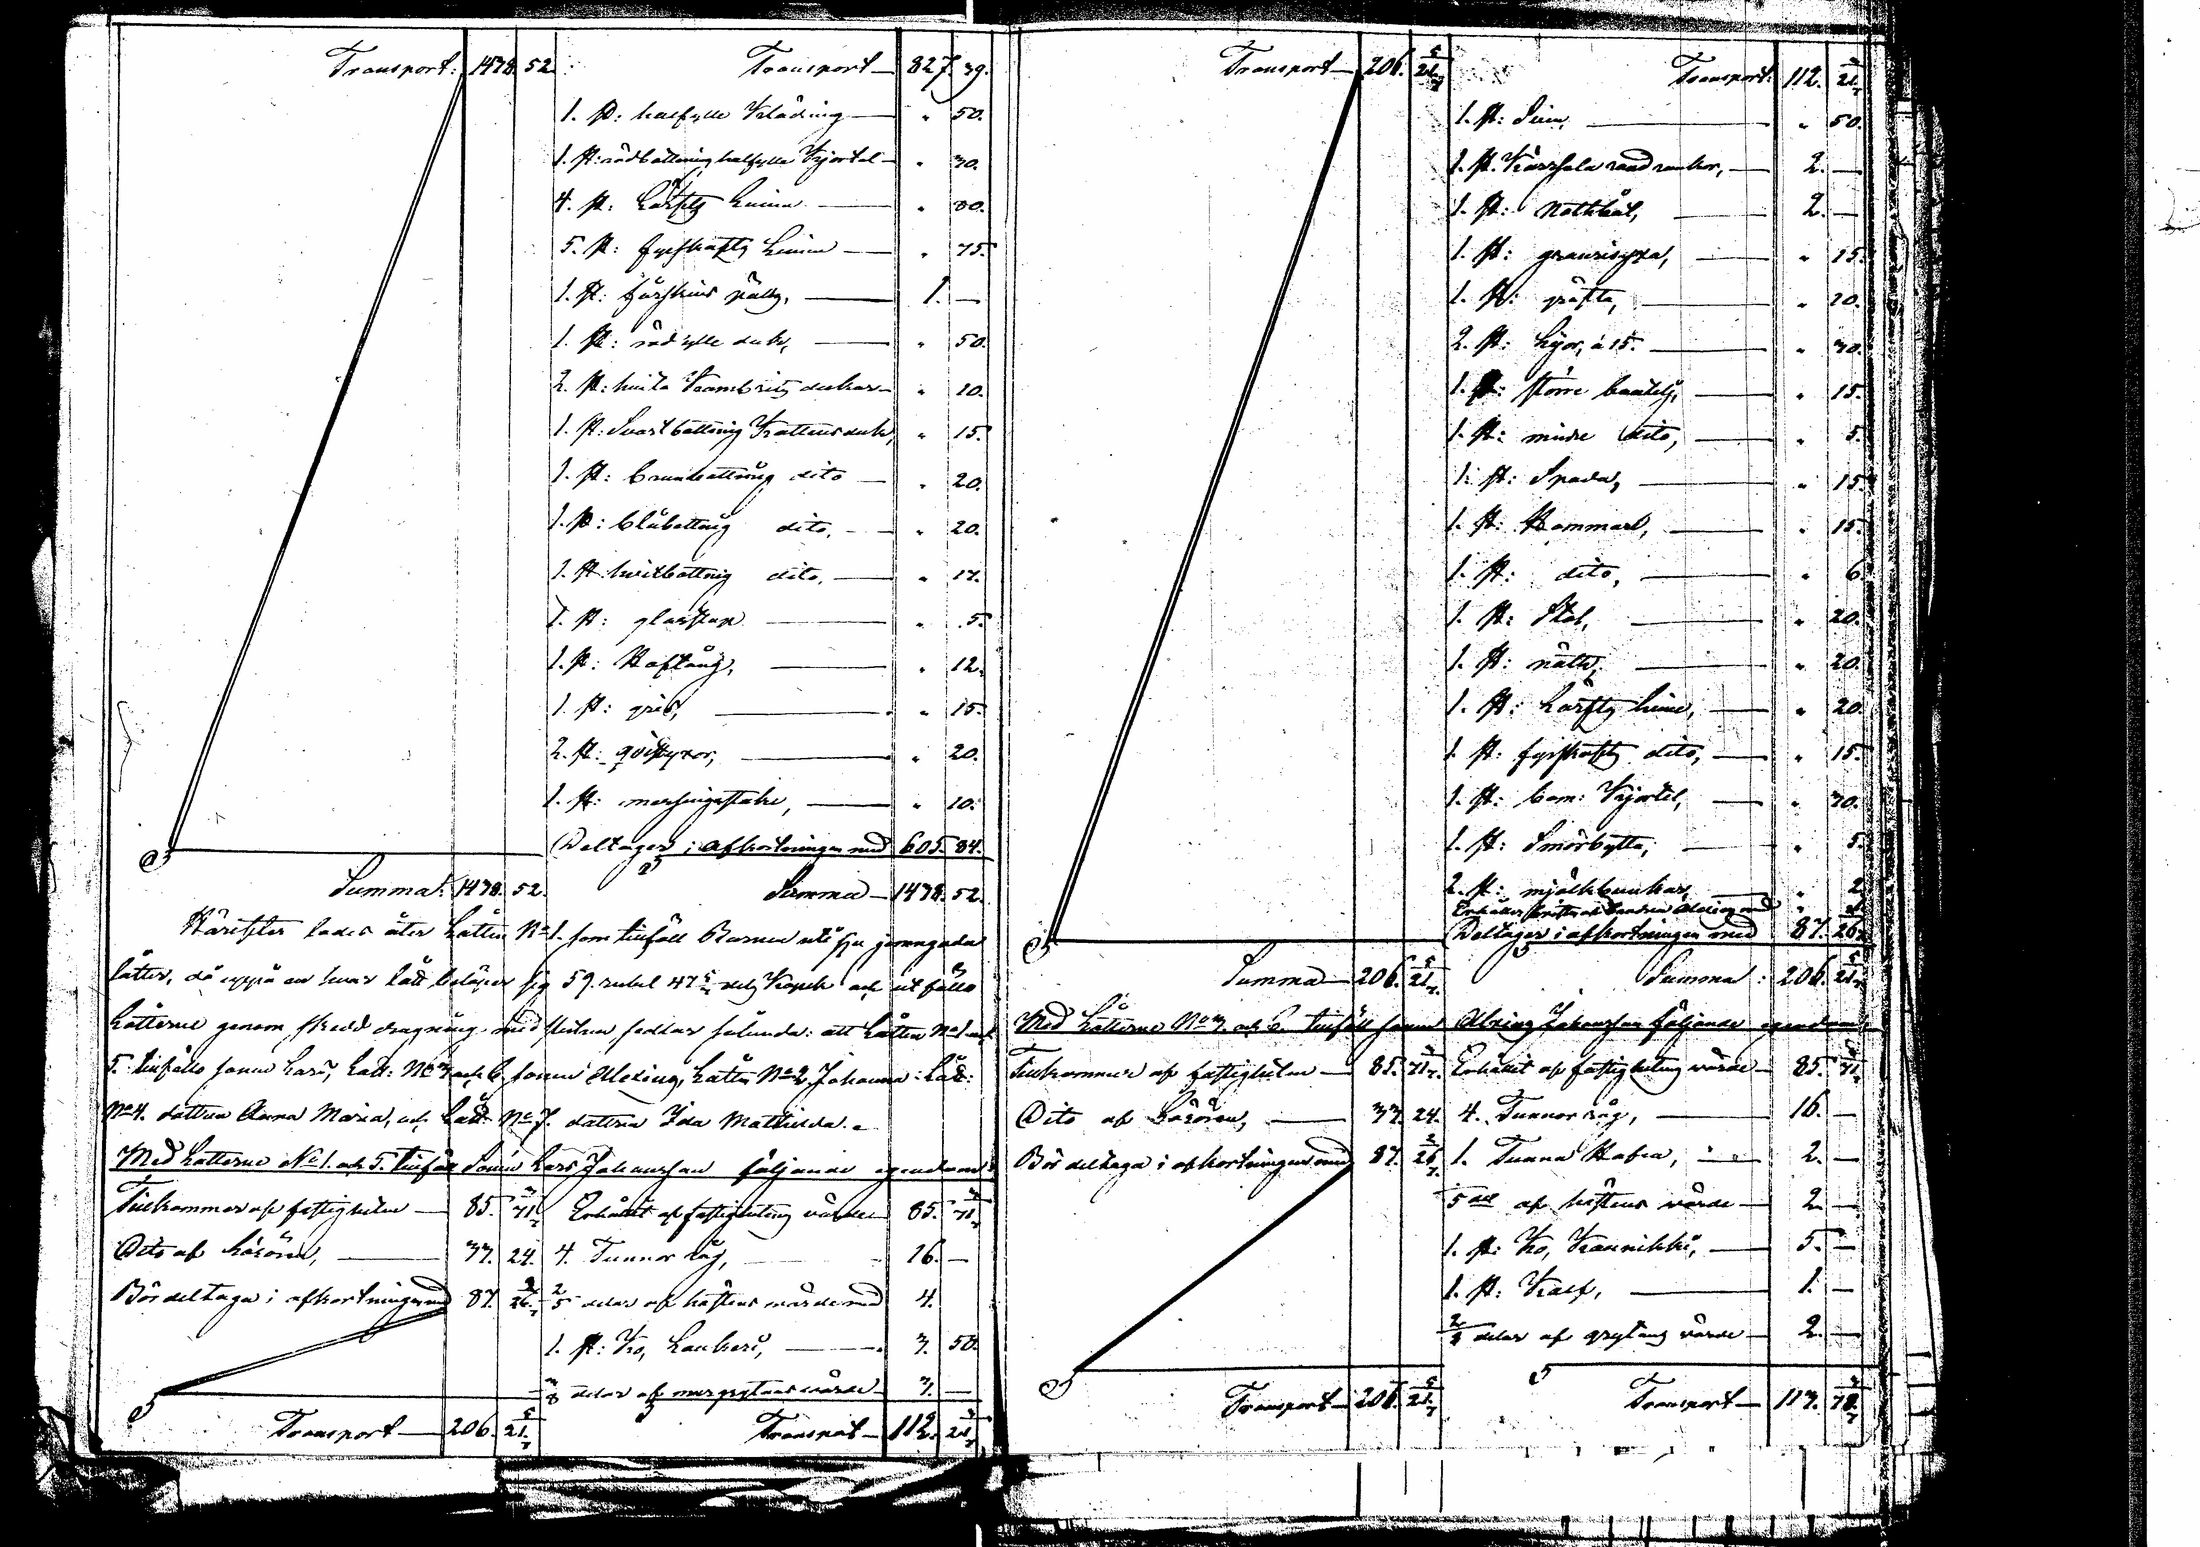 Transport: 1438. 52. Transport — 827. 39.
1. st: halfylle Klädning — " 50.
1. st: rödbottnig halfylle Kjortel — " 30.
4. st: Lärfts Linnen — " 80.
5. st: fyrskafts Linnen — " 75.
1. st: fårskins päls, — 1. —
1. st: röd ylle duk, — " 50.
2. st: hvita Kambrits dukar — " 10.
1. st: Svartbottnig Kattunsduk, " 15.
1. st: brunbottnig dito — " 20.
1. st: blåbottnig dito, — " 20.
1. st: hvitbottnig dito, — " 17.
1. st: glasstop — " 5.
1. st: Hoftång, — " 12.
1. st: 15.
2. st: qvistyxor, — " 20.
1. st: messingsstake, — " 10.
Deltager i afkortningen med 605. 84.
Summa: 1438. 52. Summa — 1438. 52.
Härefter lades åter Lotten No 1. som tillföll Barnen uti sju jemngoda
lotter, då uppå en hvar lott belöper sig 59. rubel 47 5/7 dels Kopek och utföllo
Lotterne genom skedd dragning med sedlar sålunda: att Lotten No 1 och
5. tillföllo sonen Lars, Lott: No 3 och 6. sonen Alexius, Lotten No 2 Johanna: Lott:
No 4. dottren Anna Maria, och Lott No 7. dottren Ida Mathilda. —
Med Lotterne No 1. och 5. tillföll Sonen Lars Johansson följande egendom:
Tillkommer af fastigheten — 85. 71 3/7 Erhållit af fastighetens värde 85. 71 3/7
Dito af Lösören, — 33. 24. 4. Tunnor råg, — 16. —
Bör deltaga i afkortningen med 87. 26 2/7 2/5 delar af hästens värde med 4.
1. st: Ko, — 3. 50.
3/8 delar af värde — 3. —
Transport — 206. 21 5/7 Transport — 112. 21 3/7
Transport — 206. 21 5/7 Transport: 112. 21 3/7
1. st: — " 50.
1. st: — 2. —
1. st: — 2. —
1. st: — " 15.
1. st: — " 20.
2. st: Lijor, à 15. — " 30.
1. st: större — " 15.
1. st: mindre dito, — " 5.
1. st: Spada, — " 15.
1. st: Hammare, — " 15.
1. st: dito, — " 6.
1. st: Stol, — " 20.
1. st: — " 20.
1. st: Lärfts Linne, — " 20.
1. st: fyrskafts dito, — " 15.
1. st: bom: Kjortel, — " 30.
1. st: Smörbytta, — " 5.
2. st: mjölkbunkar, — " 2.
Deltager i afkortningen med 87. 26 2/7
Summa — 206. 21 5/7 Summa: 206. 21 5/7
Med Lotterne No 3. och 6. tillföll sonen Alexius Johansson följande egendom:
Tillkommer af fastigheten — 85. 71 3/7 Erhållit af fastighetens värde — 85. 71 3/7
Dito af Lösören, — 33. 24. 4. Tunnor råg, — 16. —
Bör deltaga i afkortningen med 87. 26 2/7 1. Tunna Hafra, — 2. —
5 del af hästens värde — 2. —
1. st: Ko, — 5. —
1. st: Kalf, — 1. —
2/8 delar af värde — 2. —
Transport — 206. 21 5/7 Transport — 113. 71 3/7